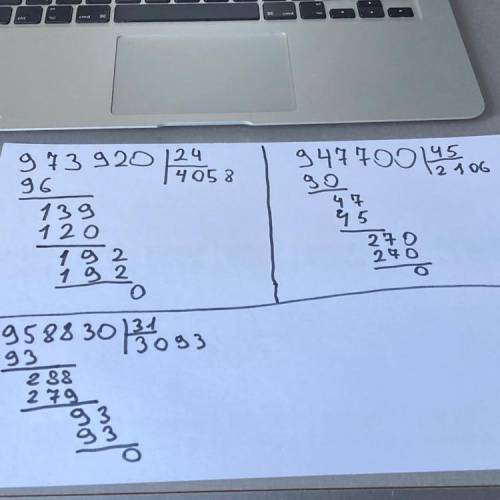 973920 24
96 4058
139
120
192
192
0
947700 45
90 2106
47
45
270
270
0
958830 31
93 3093
288
279
93
93
0